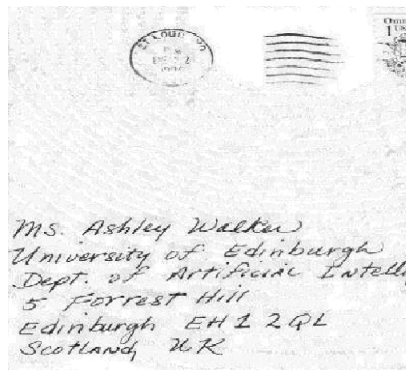 ST. LOUIS
PM
1
Ms. Ashley Walker
University of Edinburgh
Dept. of Artificial Intell
5 Forrest Hill
Edinburgh EH1 2QL
Scotland, UK